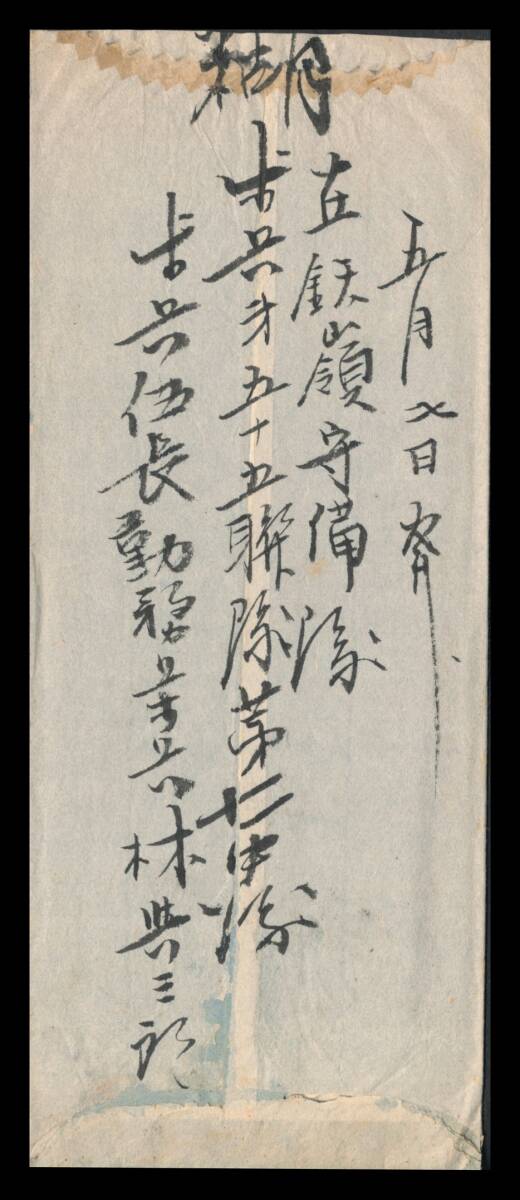 糊
五月七日
在鉄嶺守備隊
歩兵第五十五聯隊第十二中隊
歩兵伍長勤務上等兵林与三郎